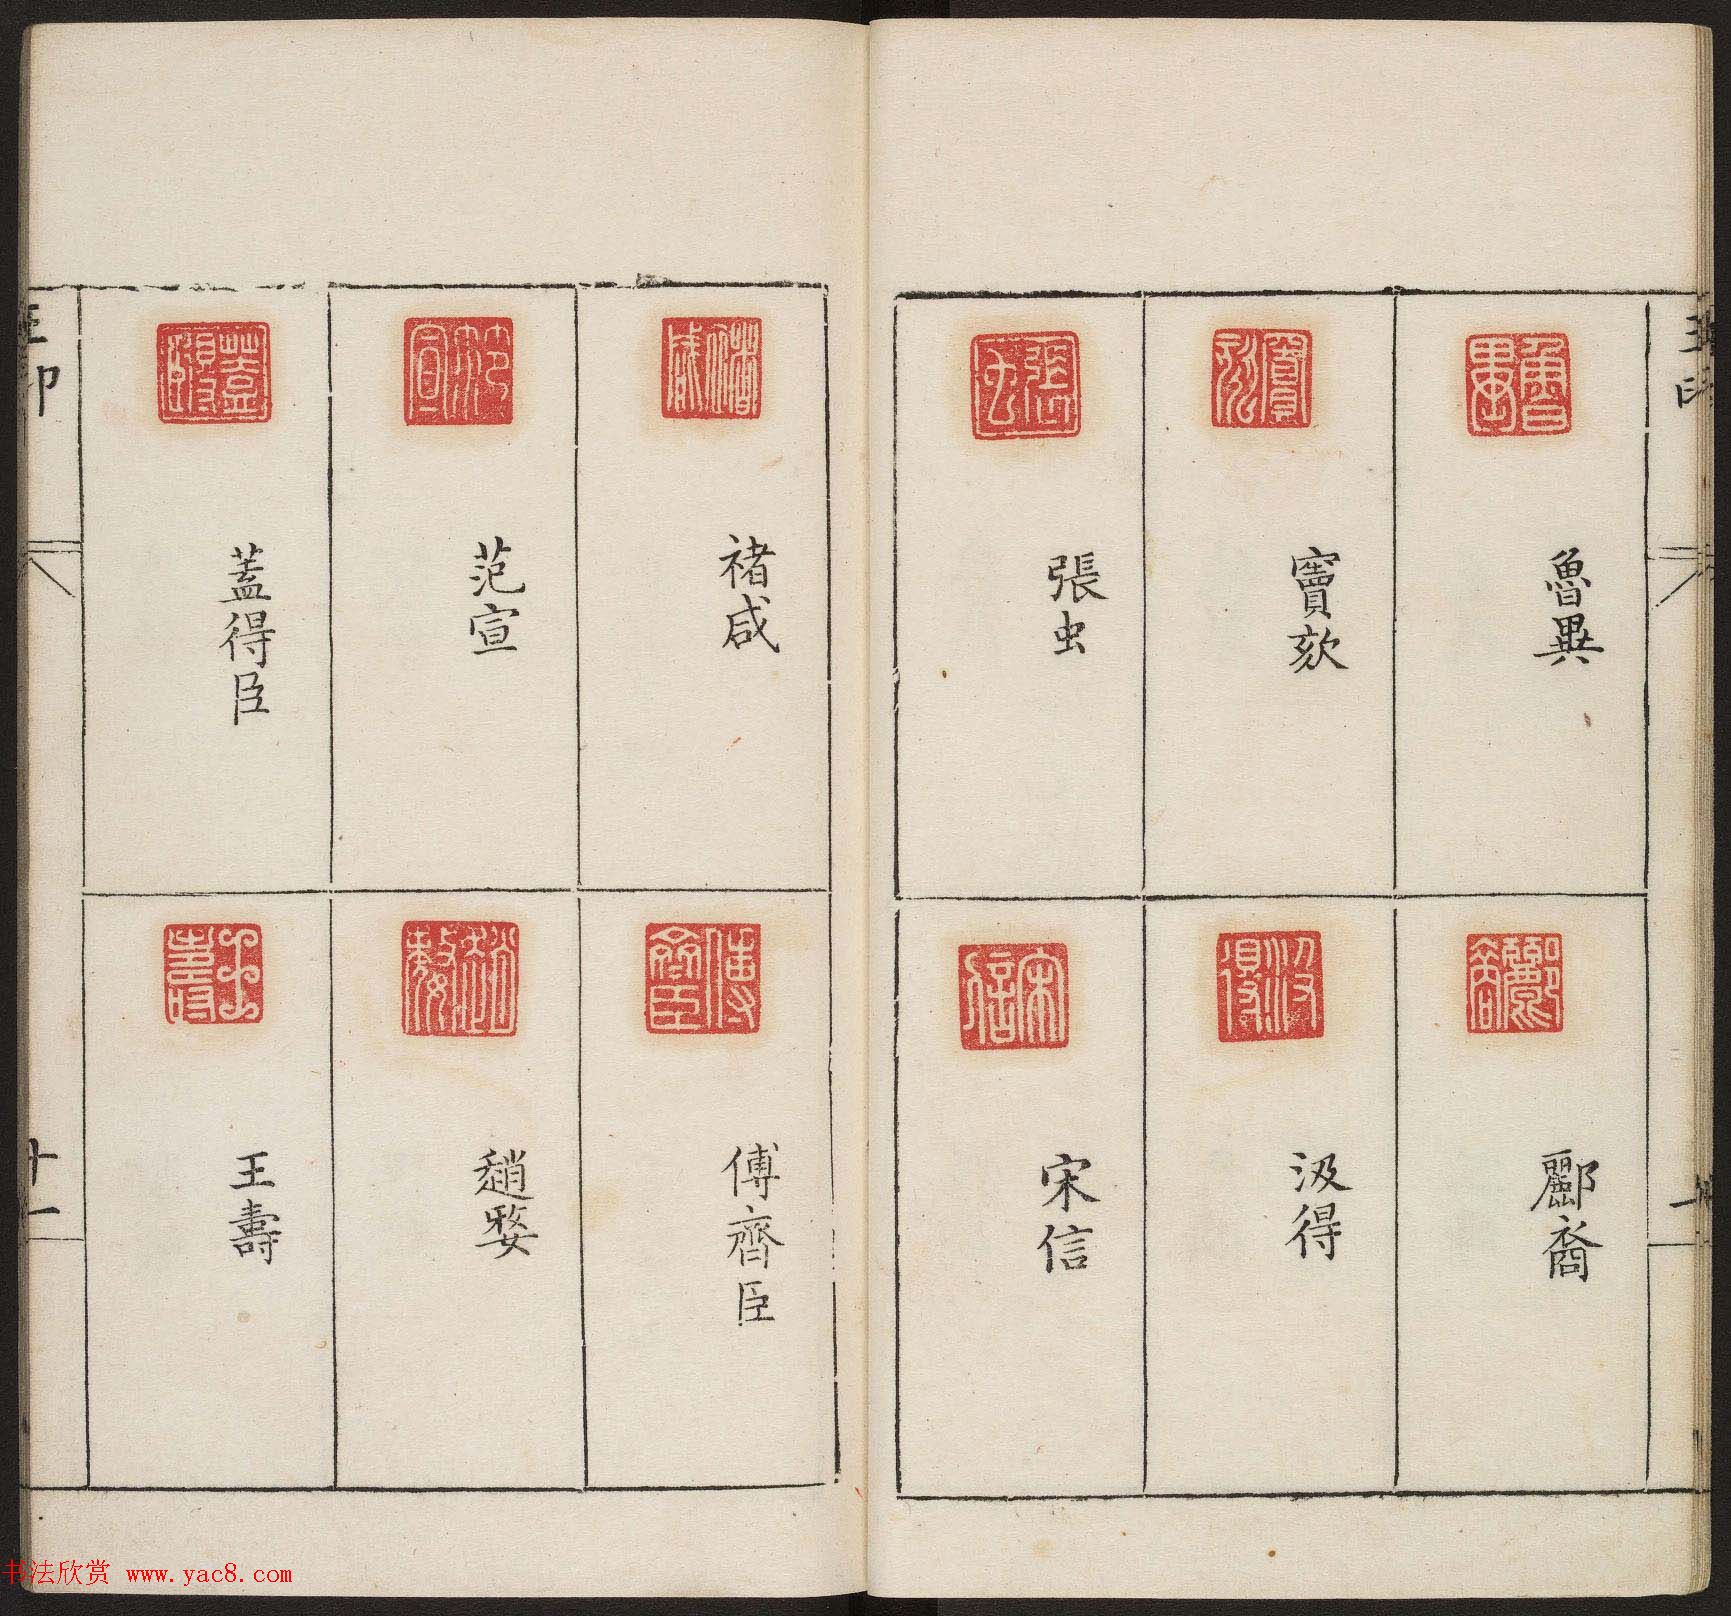 魯異
竇欬
張虫
酈裔
汲得
宋信
褚咸
范宣
蓋得臣
傅齊臣
趙婺
王壽
十一
书法欣赏 www.yac8.com